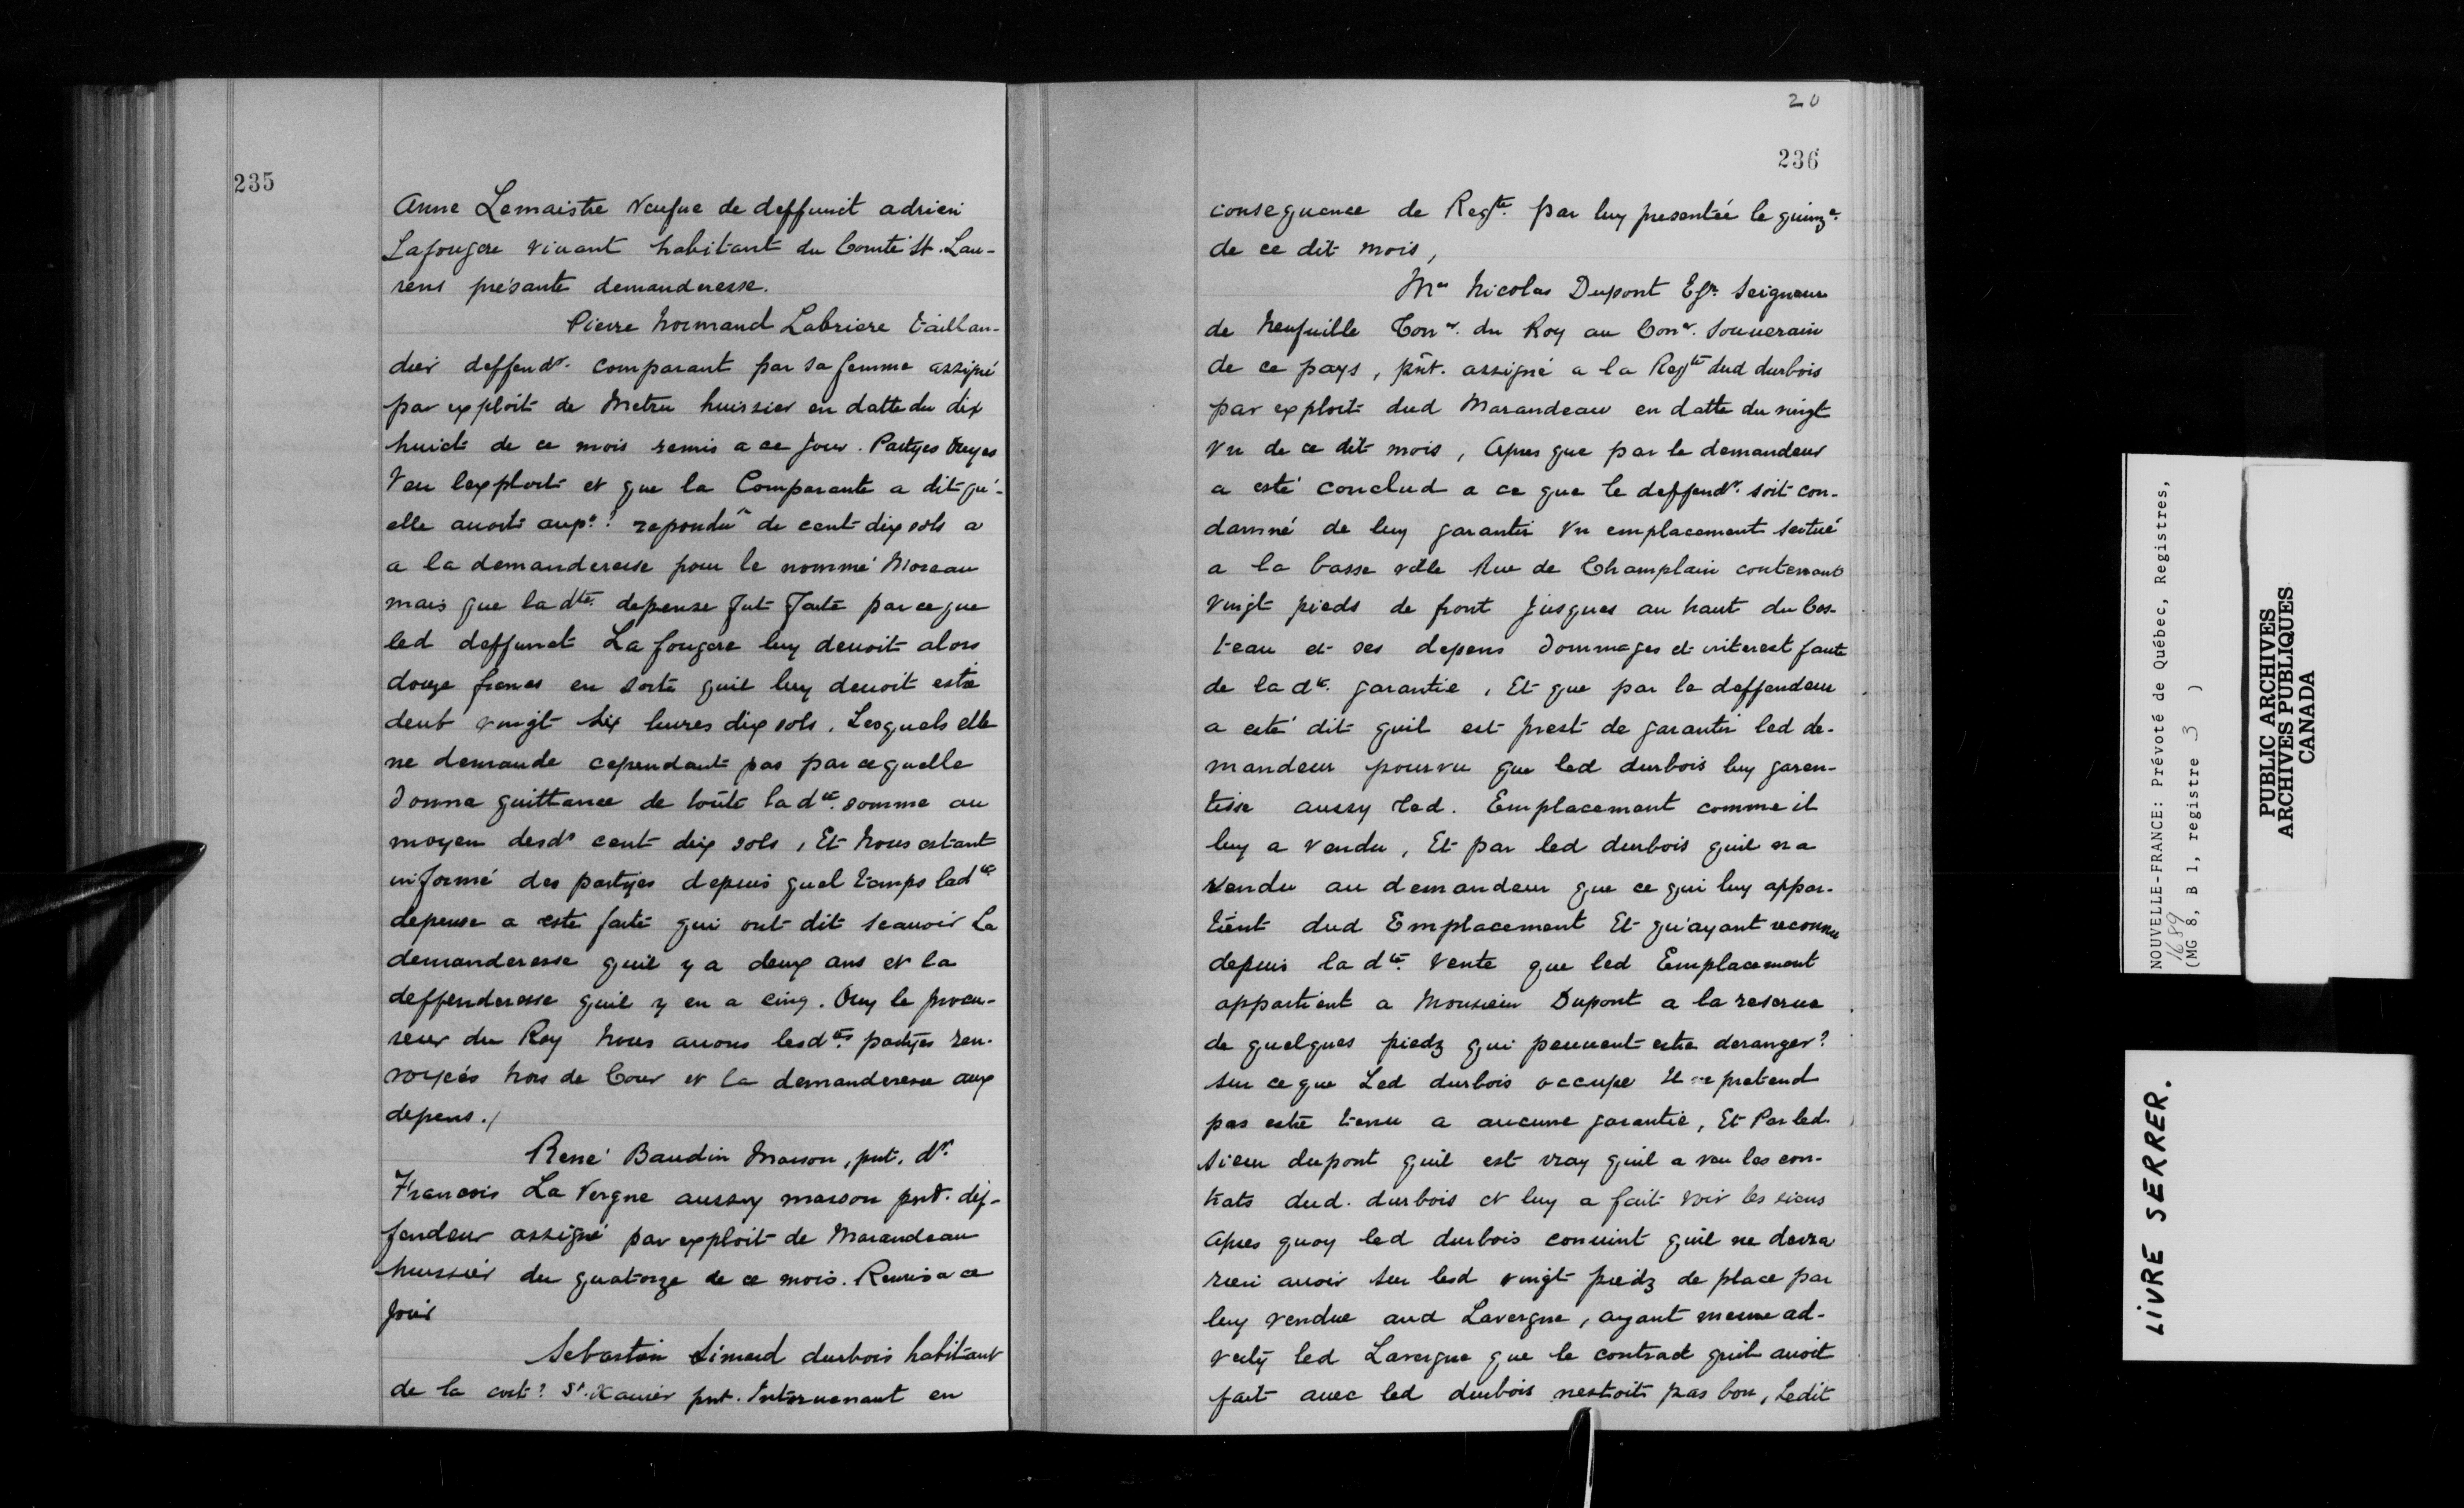 235
Anne Lemaistre Veufue de deffunct adrien
Lafougere viuant habitant du Comté St. Lau-
rens présante demanderesse.
Pierre Normand Labriere taillan-
dier deffendr. comparant par sa femme assigné
par exploit de Metru huissier en datte du dix
huict de ce mois remis a ce jour. Partyes Ouyes
Veu lexploit et que la Comparante a dit qu'-
elle auoit aupt? repondu de cent dix sols a
a la demanderesse pour le nommé Moreau
mais que ladte. depense fut faite parceque
led deffunct La fougere luy deuoit alors
douze francs en sorte quil luy deuoit estre
deub vingt six liures dix sols. Lesquels elle
ne demande cependant pas parcequelle
donne quittance de toute la dte. somme au
moyen desds cent dix sols, Et Nous estant
informé des partyes depuis quel temps ladte
depense a esté faite qui ont dit scauoir La
demanderesse quil y a deux ans et la
deffenderesse quil y en a cinq. Ouy le procu-
reur du Roy Nous auons lesdtes. partyes ren-
voyées hors de Cour et la demanderesse aux
depens./
René Baudin Masson, pnt. dr.
Francois La Vergne aussy masson pnt. def-
fendeur assigné par exploit de Marandeau
huissier du quatorze de ce mois. Remis a ce
jour
Sebastien Simard durbois habitant
de la cost? St. Xauier pnt. Interuenant en
20
236
consequence de Regte. par luy presentée le quinze.
de ce dit mois,
Me Nicolas Dupont Esr. Seigneur
de Neufuille Conr. du Roy au Conr. Souuerain
de ce pays, pnt. assigné a la Regte dud durbois
par exploit dud Marandeau en datte du vingt
vn de ce dit mois, Apres que par le demandeur
a esté conclud a ce que le deffendr. soit con-
damné de luy garantir vn emplacement scitué
a la basse ville Rue de Champlain contenant
vingt pieds de front jusques au haut du Cos-
teau et ses depens dommages et interest faute
de la dte. garantie, Et que par le deffendeur
a esté dit quil est prest de garantir led de-
mandeur pourvu que led durbois luy garen-
tisse aussy led. Emplacement comme il
luy a vendu, Et par led durbois quil na
vendu au demandeur que ce qui luy appar-
tient dud Emplacement Et qu'ayant reconnu
depuis la dte. vente que led Emplacement
appartient a Monsieur Dupont a la reserue
de quelques piedz qui peuuent estre deranger?
sur ce que Led durbois occupe Il ne pretend
pas estre tenu a aucune garantie, Et Par led.
Sieur dupont quil est vray quil a veu les con-
trats dud. durbois et luy a fait voir les siens
apres quoy led durbois conuint quil ne deura
rien auoir sur lesd vingt piedz de place par
luy vendue aud Lavergne, ayant mesme ad-
verty led Lavergne que le contract quil auoit
fait auec led durbois nestoit pas bon, Ledit
NOUVELLE-FRANCE: Prévoté de Québec, Registres,
1689
(MG 8, B 1, registre 3 )
PUBLIC ARCHIVES
ARCHIVES PUBLIQUES
CANADA
LIVRE SERRER.